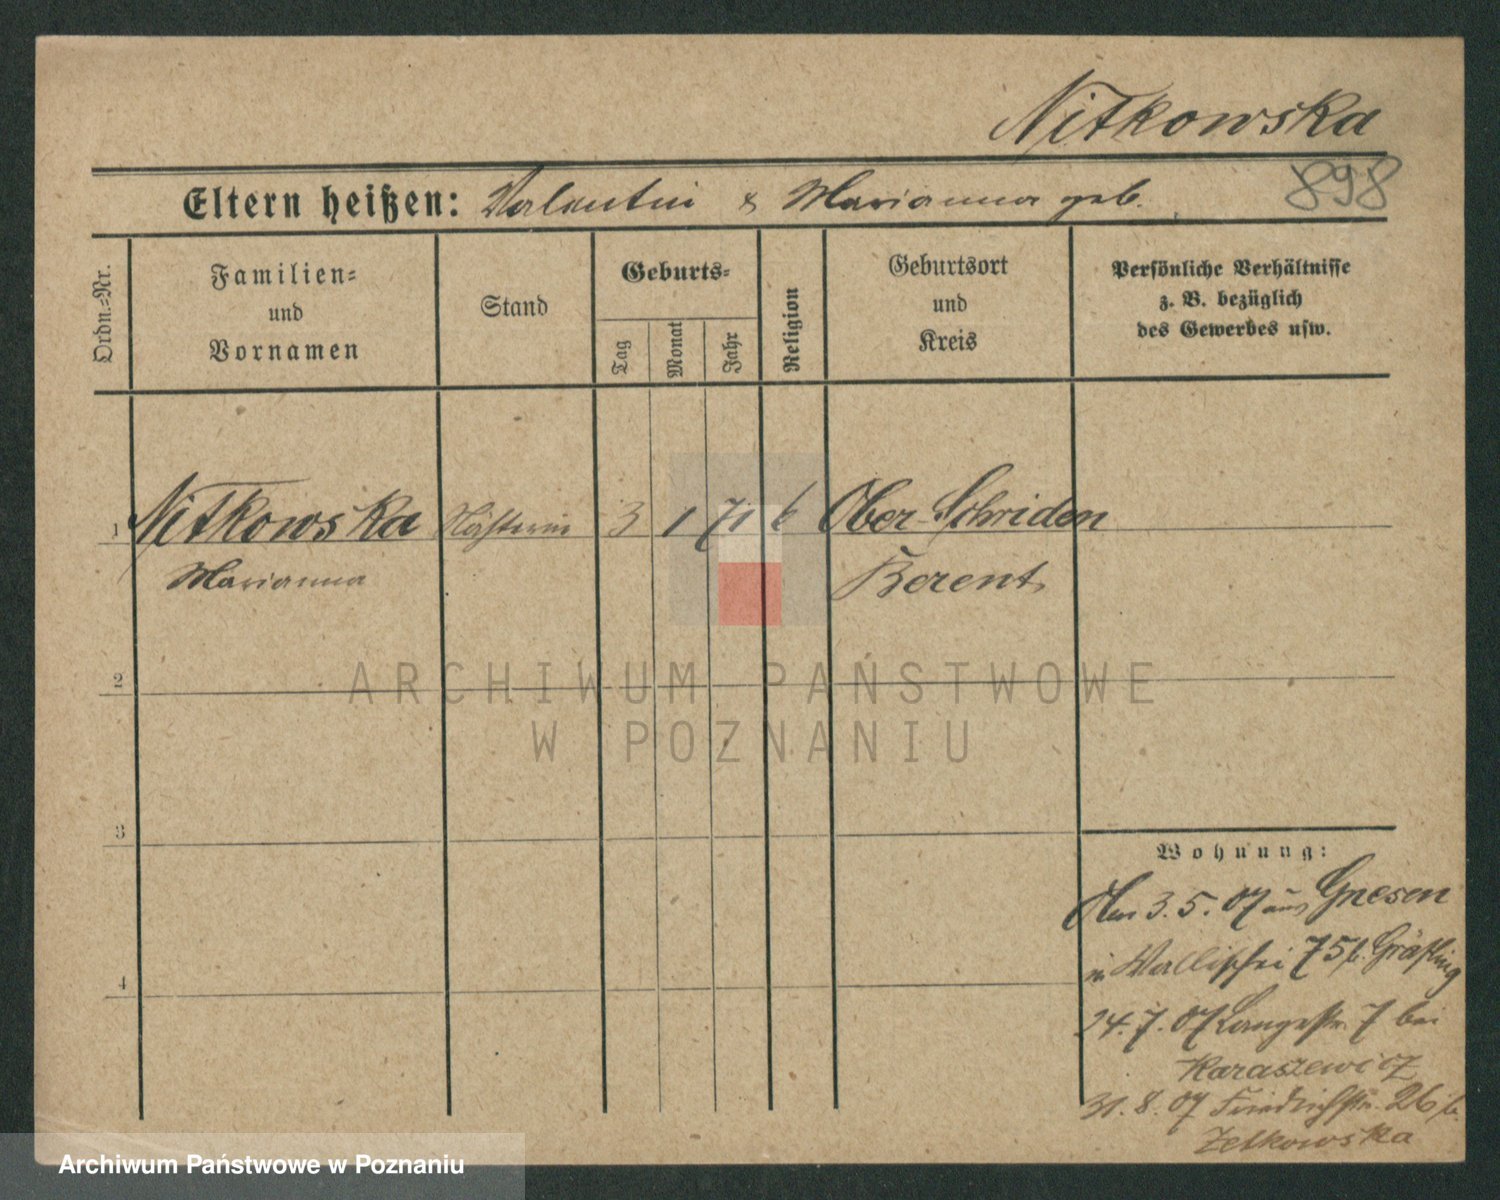 Nitkowska
898
Eltern heißen: Valentin & Marianna geb.
Ordn.=Nr.
Familien=
und
Vornamen
Stand
Geburts=
Tag
Monat
Jahr
Religion
Geburtsort
und
Kreis
Persönliche Verhältnisse
z. B. bezüglich
des Gewerbes usw.
1 Nitkowska Näherin 3 1 71 k Ober-Schriden
Marianna Berent
2
3
4
Wohnung:
3.5.07 aus Gnesen
in Wallischei 75 b. Gräfling
24.7.07 Langestr 7 bei
Karaszewicz
31.8.07 Friedrichstr. 26 b.
Zelkowska
ARCHIWUM PAŃSTWOWE
W POZNANIU
Archiwum Państwowe w Poznaniu